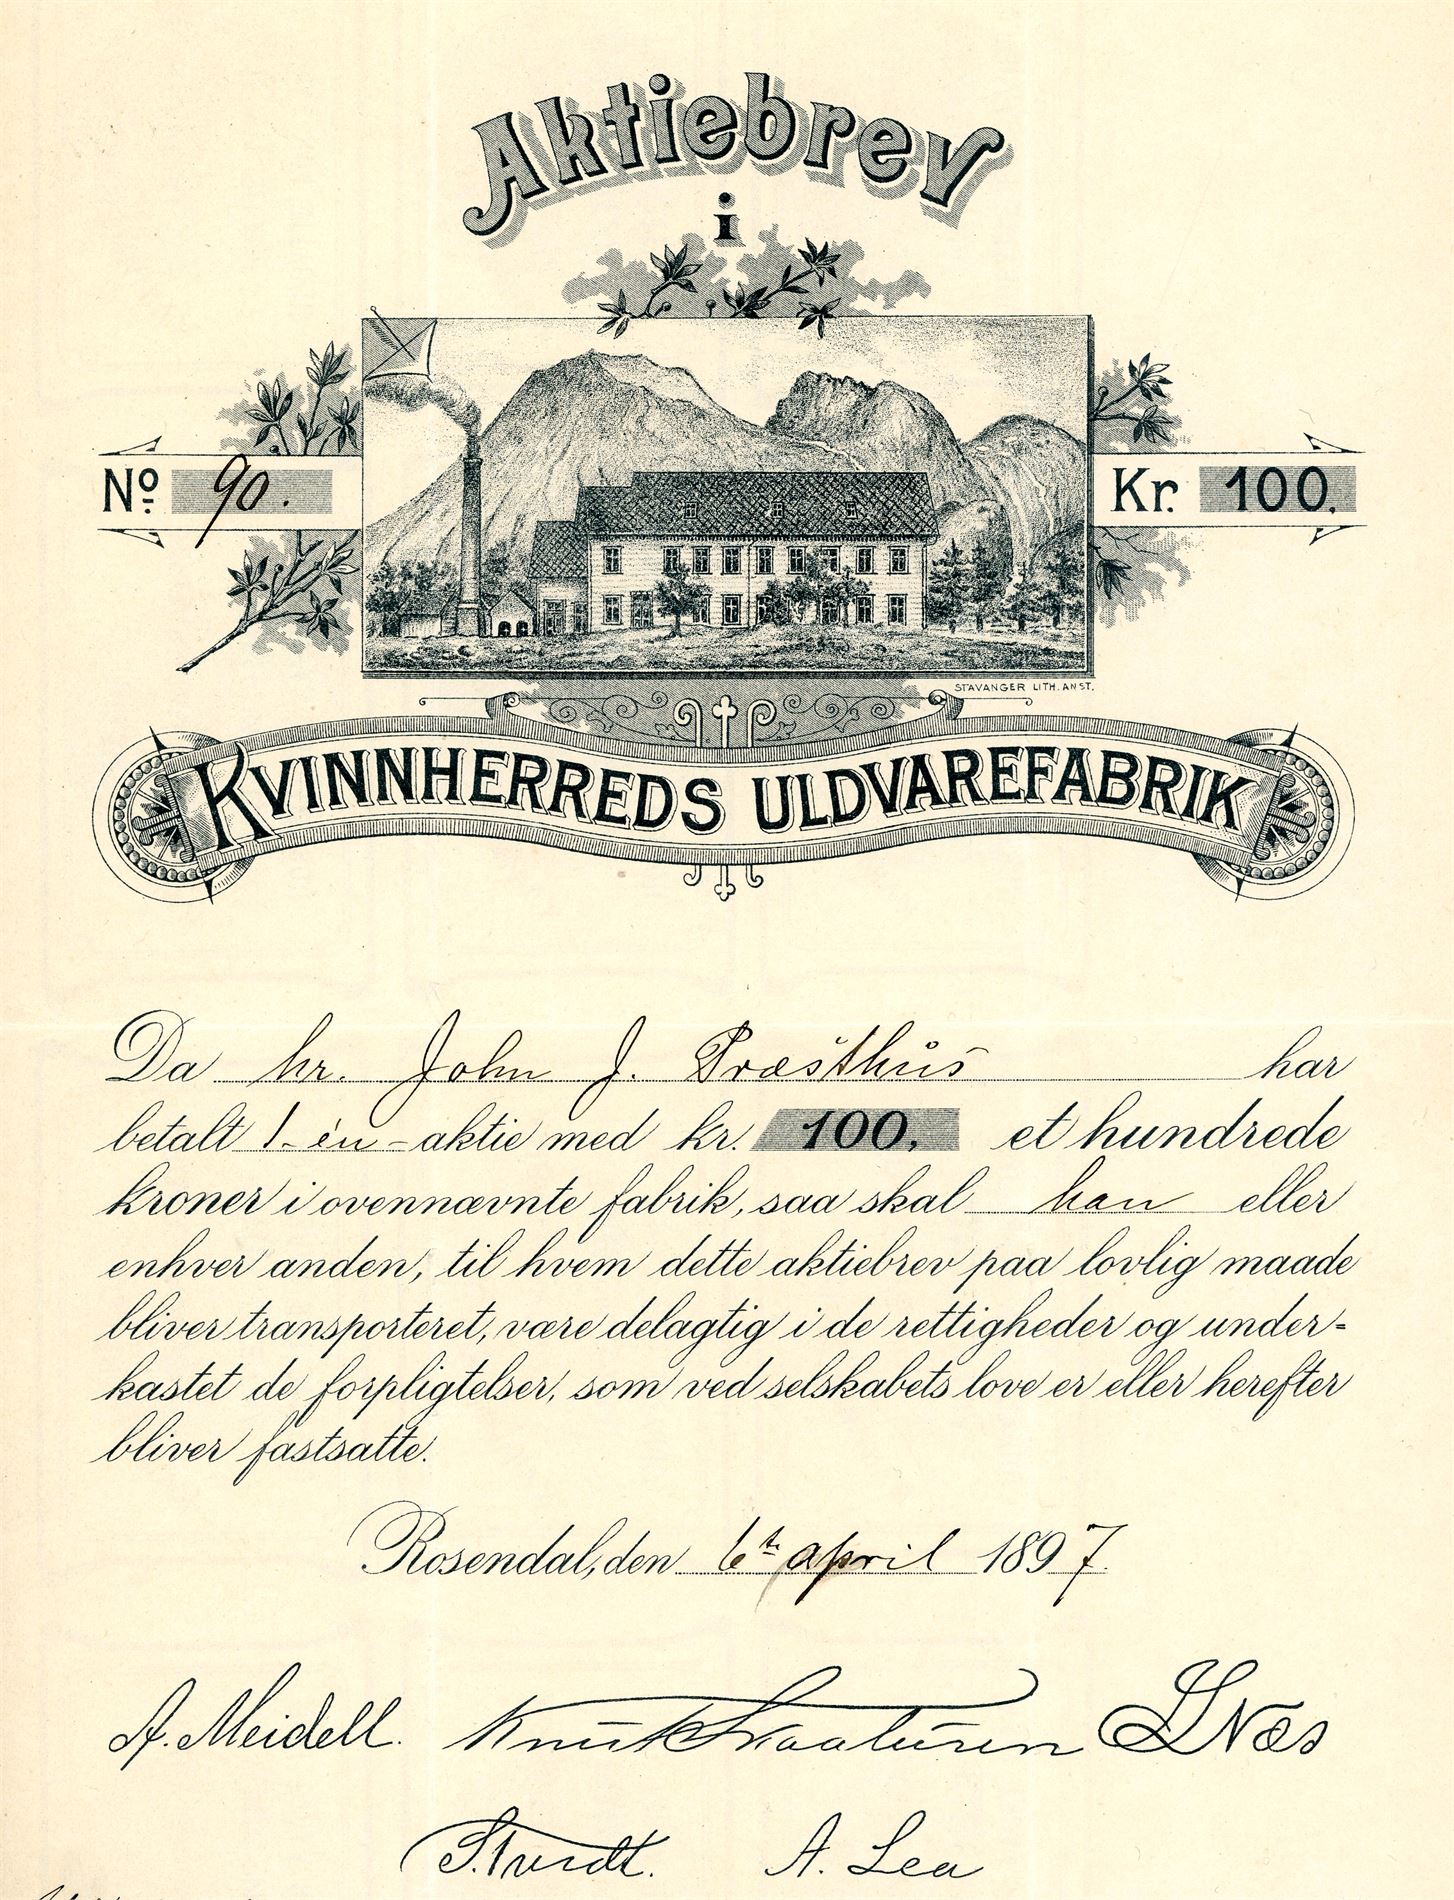 Aktiebrev
i
No 90.
Kr. 100.
STAVANGER LITH. ANST.
KVINNHERREDS ULDVAREFABRIK
Da hr. John J. Præsthus har
betalt 1 - én - aktie med kr. 100, et hundrede
kroner i ovennævnte fabrik, saa skal han eller
enhver anden, til hvem dette aktiebrev paa lovlig maade
bliver transporteret, være delagtig i de rettigheder og under-
kastet de forpligtelser, som ved selskabets love er eller herefter
bliver fastsatte.
Rosendal, den 6te april 1897.
A. Meidell. Knut Skaaluren Næs
S. Tvedt. A. Lea